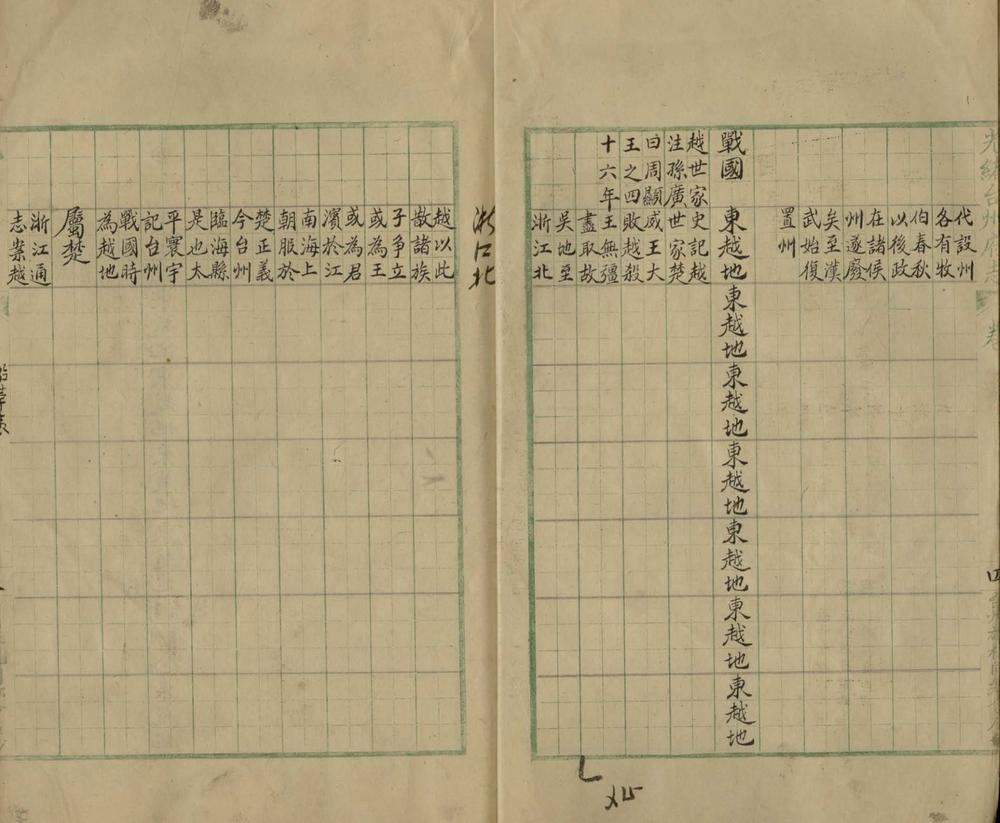 光緒台州府志 卷
四
代設州
各有牧
伯春秋
以後政
在諸侯
州遂廢
矣至漢
武始復
置州
戰國 東越地 東越地 東越地 東越地 東越地 東越地 東越地
越世家 史記越
注孫廣 世家楚
曰周顯 威王大
王之四 敗越殺
十六年 王無彊
盡取故
吳地至
浙江北
浙江北
越以此
散諸族
子爭立
或為王
或為君
濱於江
南海上
朝服於
楚正義
今台州
臨海縣
是也太
平寰宇
記台州
戰國時
為越地
屬楚
浙江通
志案越